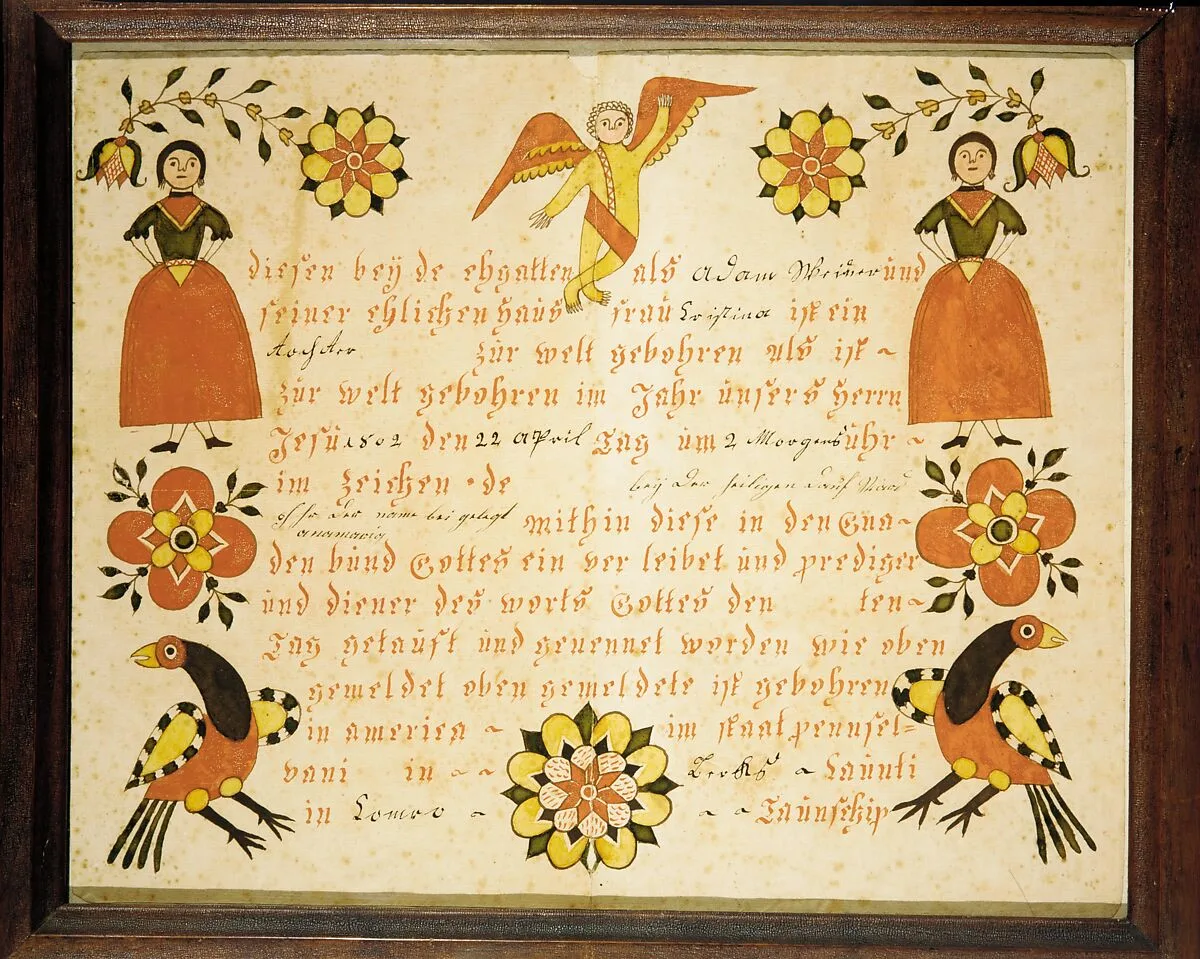 diesen bey de ehgatten als Adam Weiser und
seiner ehlichen haus frau Cristina ist ein
tochter zur welt gebohren als ist ~
zur welt gebohren im Jahr unsers Herrn
Jesu 1802 den 22 April Tag um 2 Morgens uhr ~
im zeichen de bey der heiligen dauf
der name bei gelegt mithin diese in den Gna~
anamaria
den bund Gottes ein ver leibet und prediger
und diener des worts Gottes den ten~
Tag getauft und genennet worden wie oben
gemeldet oben gemeldete ist gebohren
in america ~ im staat pennsel=
vani in ~ ~ Berks ~ Caunti
in Comro ~ ~ ~ Taunschip